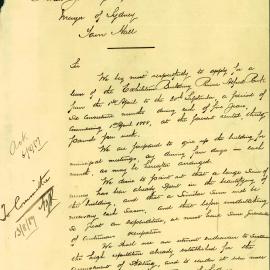 Mayor of Sydney
Town Hall
Sir
We beg most respectfully to apply for a
lease of the Exhibition Building, Prince Alfred Park
from the 1st April to the 30th September a period of
six consecutive months during each of five years,
commencing 1st April 1888, at the present rental thirty
Pounds per week.
We are prepared to give up the building for
municipal meetings, any during four days in each
week, as may be hereafter arranged.
We desire to point out that a large sum of
money has been already spent in the beautifying of
the building, and that a similar sum will be
necessary each season, and that before
so great an expenditure, we must have some guarantee
of continuous occupation
We shall use our utmost endeavour to sustain
the high reputation already established for the
amusement of Skating, and to render it even more
Ack
To Committee